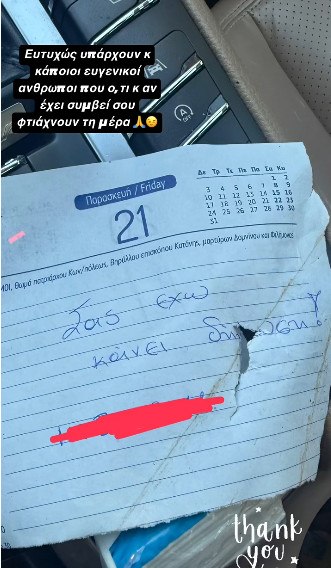 Ευτυχώς υπάρχουν κ
κάποιοι ευγενικοί
ανθρωποι που ο,τι κ αν
έχει συμβεί σου
φτιάχνουν τη μέρα 🙏😉
Παρασκευή / Friday
21
Δε Τρ Τε Πε Πα Σα Κυ
1 2
3 4 5 6 7 8 9
10 11 12 13 14 15 16
17 18 19 20 21 22 23
24 25 26 27 28 29 30
31
Θωμά πατριάρχου Κων/πόλεως, Βηρύλλου επισκόπου Κατάνης, μαρτύρων Δομνίνου και Φιλήμονος
Σας έχω
κάνει
thank
you